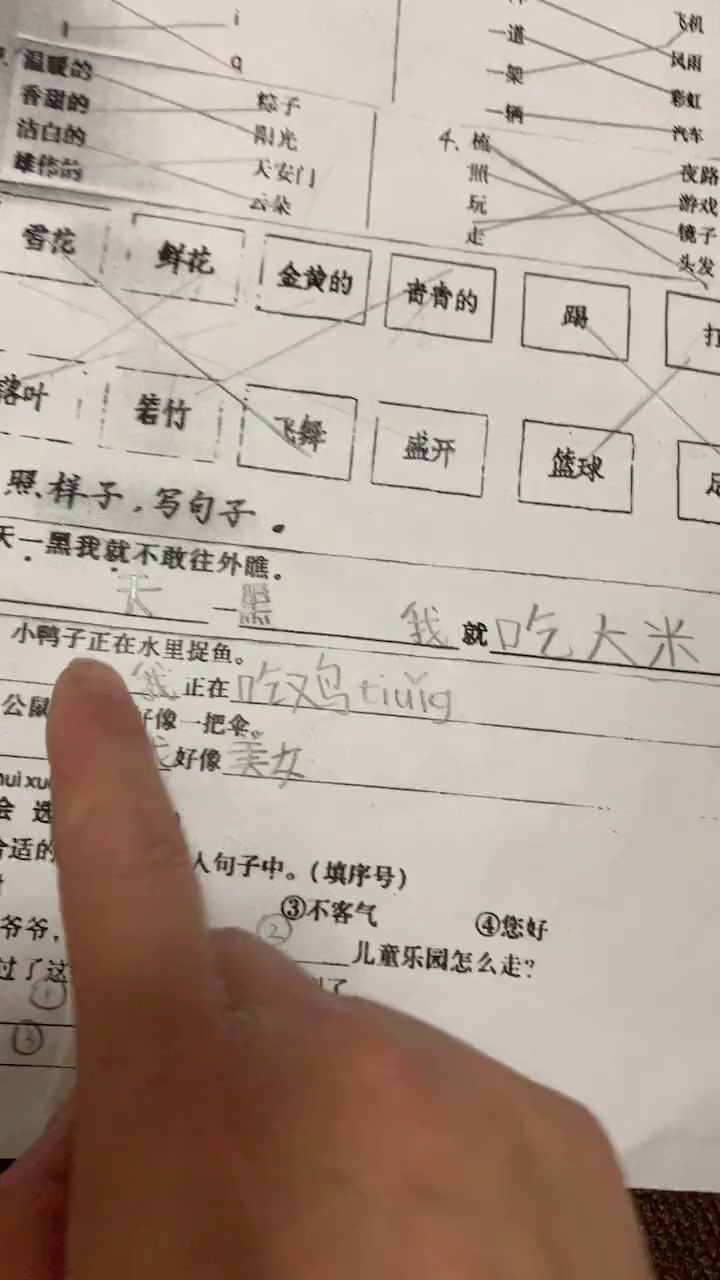 i
q
温暖的
香甜的 粽子
洁白的 阳光
雄伟的 天安门
云朵
飞机
一道 风雨
一架 彩虹
一辆 汽车
4、梳 夜路
照 游戏
玩 镜子
走 头发
雪花 鲜花 金黄的 青青的 踢 打
落叶 箬竹 飞舞 盛开 篮球 足
照样子，写句子。
天一黑我就不敢往外瞧。
天一黑 我就吃大米
小鸭子正在水里捉鱼。
我正在吃鸡tiuǐg
公鼠 好像一把伞。
好像美女
hui xu
会 选
合适的 人句子中。(填序号)
③不客气 ④您好
爷爷， ② 儿童乐园怎么走?
过了这 ①
③